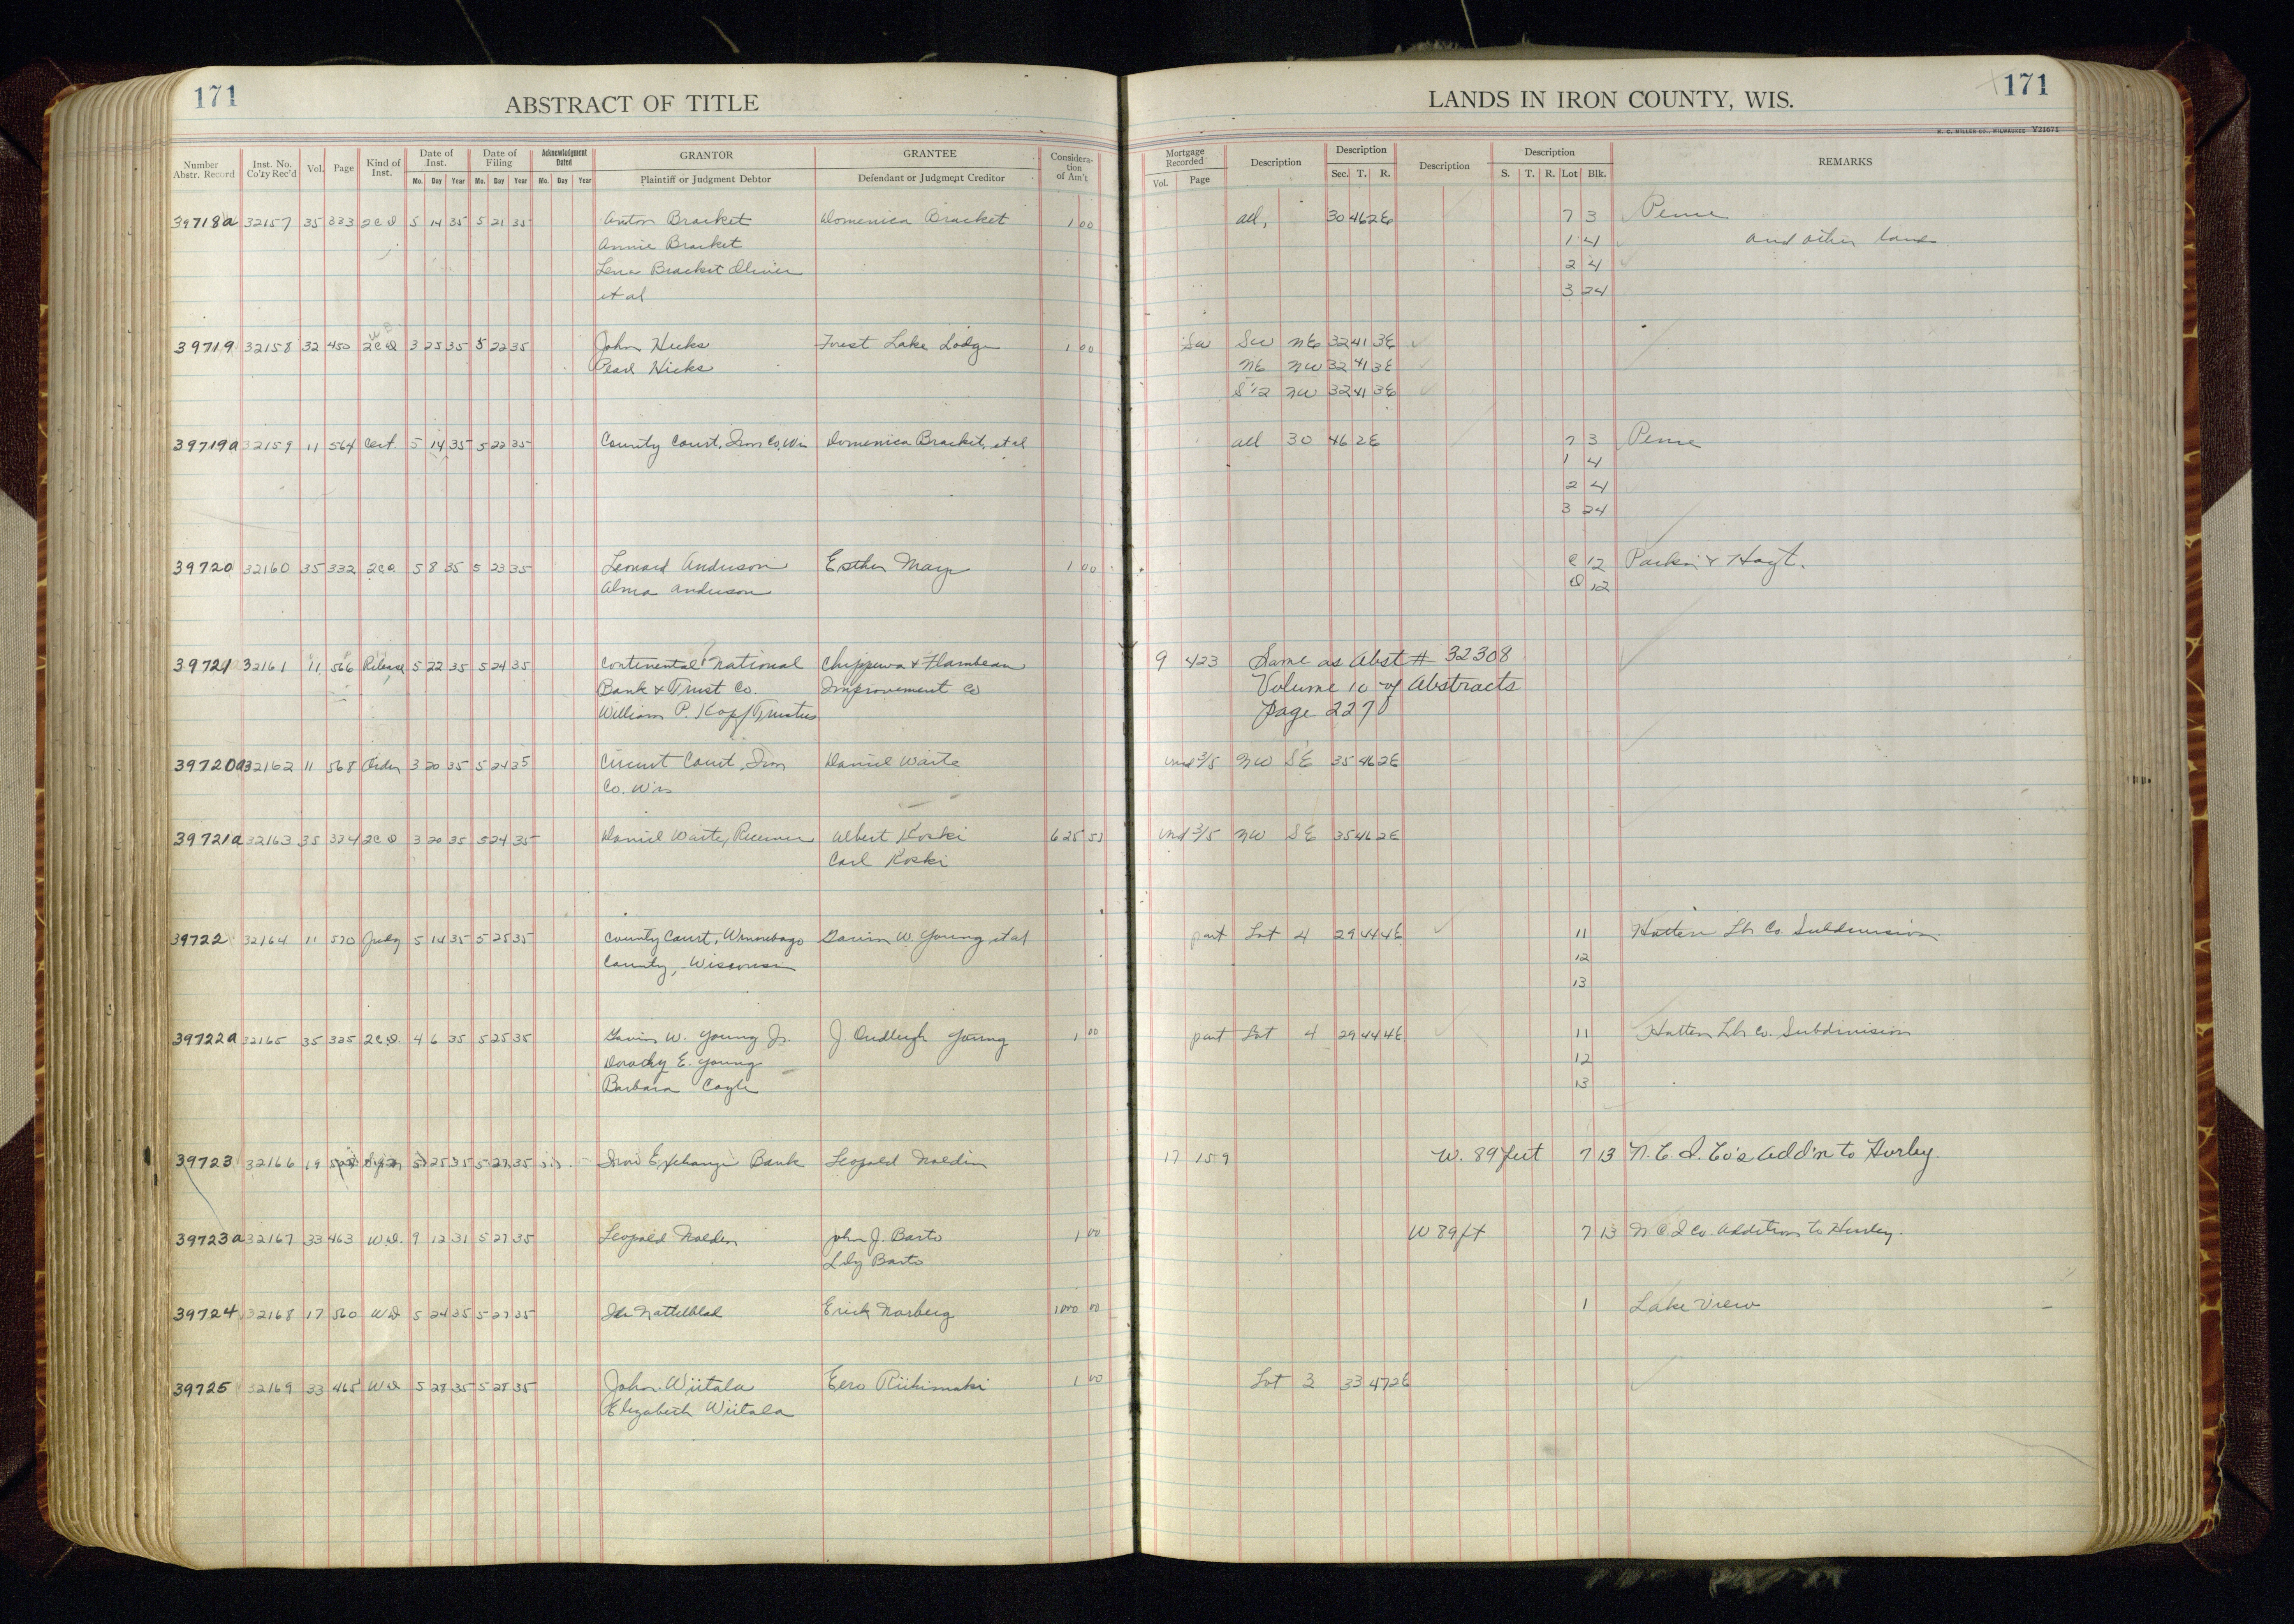 171
ABSTRACT OF TITLE
Number Abstr. Record Inst. No. Co'ty Rec'd Vol. Page Kind of Inst. Date of Inst. Mo. Day Year Date of Filing Mo. Day Year Acknowledgment Dated Mo. Day Year GRANTOR Plaintiff or Judgment Debtor GRANTEE Defendant or Judgment Creditor Considera-tion of Am't
39718a 32157 35 333 2CD 5 14 35 5 21 35 Anton Bracket Domenica Bracket 1 00
Annie Bracket
Lena Bracket Olivier
et al
39719 32158 32 450 2CD 3 25 35 5 22 35 John Hicks Forest Lake Lodge 1 00
Pearl Hicks
39719a 32159 11 564 Cert. 5 14 35 5 22 35 County Court, Iron Co, Wis Domenica Bracket, et al
39720 32160 35 332 2CD 5 8 35 5 23 35 Leonard Anderson Esther 1 00
Alma Anderson
39721 32161 11 566 Release 5 22 35 5 24 35 Continental National Chippewa & Flambeau
Bank & Trust Co. Improvement Co
William P. Kopf Trustees
39720a 32162 11 568 Order 3 20 35 5 24 35 Circuit Court, Iron Daniel Waite
Co. Wis
39721a 32163 35 334 2CD 3 20 35 5 24 35 Daniel Waite, Receiver Albert Koski 625 50
Carl Koski
39722 32164 11 570 Judg 5 14 35 5 25 35 County Court, Winnebago Gavin W. Young et al
County, Wisconsin
39722a 32165 35 335 2CD. 4 6 35 5 25 35 Gavin W. Young Jr. J. Young 1 00
Dorothy E. Young
Barbara
39723 32166 19 5 25 35 5 27 35 Iron Exchange Bank Leopold Nolden
39723a 32167 33 463 W.D. 9 12 31 5 27 35 Leopold Nolden John J. Barto 1 00
Lily Barto
39724 32168 17 560 WD 5 24 35 5 27 35 Nattelblad Erick Norberg 1000 00
39725 32169 33 465 WD 5 28 35 5 28 35 John Wiitala Eero Riihimaki 1 00
Elizabeth Wiitala
LANDS IN IRON COUNTY, WIS.
171
H. C. MILLER CO., MILWAUKEE V21671
Mortgage Recorded Vol. Page Description Description Sec. T. R. Description Description S. T. R. Lot Blk. REMARKS
all, 30 46 2E 7 3 Pence
1 4 and other lands
2 4
3 24
SW SW NE 32 41 3E
NE NW 32 41 3E
S 1/2 NW 32 41 3E
all 30 46 2E 7 3 Pence
1 4
2 4
3 24
C 12 Parkin & Hoyt.
D 12
9 423 Same as Abst # 32308
Volume 10 of Abstracts
Page 227
und 3/5 NW SE 35 46 2E
und 3/5 NW SE 35 46 2E
part Lot 4 29 44 4E 11 Hatten Lbr Co. Subdivision
12
13
part Lot 4 29 44 4E 11 Hatten Lbr Co. Subdivision
12
13
17 159 W. 89 feet 7 13 N. C. I. Co's Add'n to Hurley.
W 89 ft 7 13 N C I Co. Addition to Hurley.
1 Lake View
Lot 3 33 47 2E